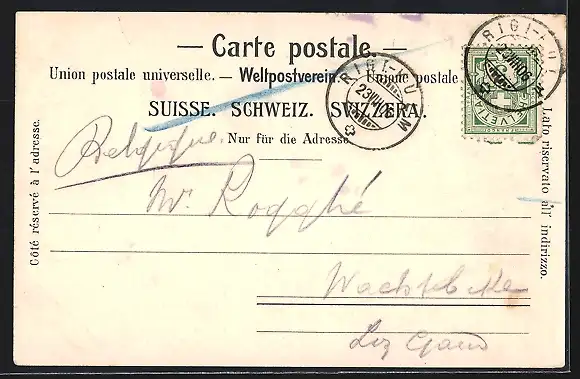 — Carte postale. —
Union postale universelle. — Weltpostverein. — Unione postale
SUISSE. SCHWEIZ. SVIZZERA.
Nur für die Adresse
Côté réservé à l'adresse.
Lato riservato all' indirizzo.
RIGI-KULM
23 VII 06
RIGI-KULM
23 VII 06
HELVETIA
Belgique
Mr. Rogghé
Wachtebeke
Lez Gand